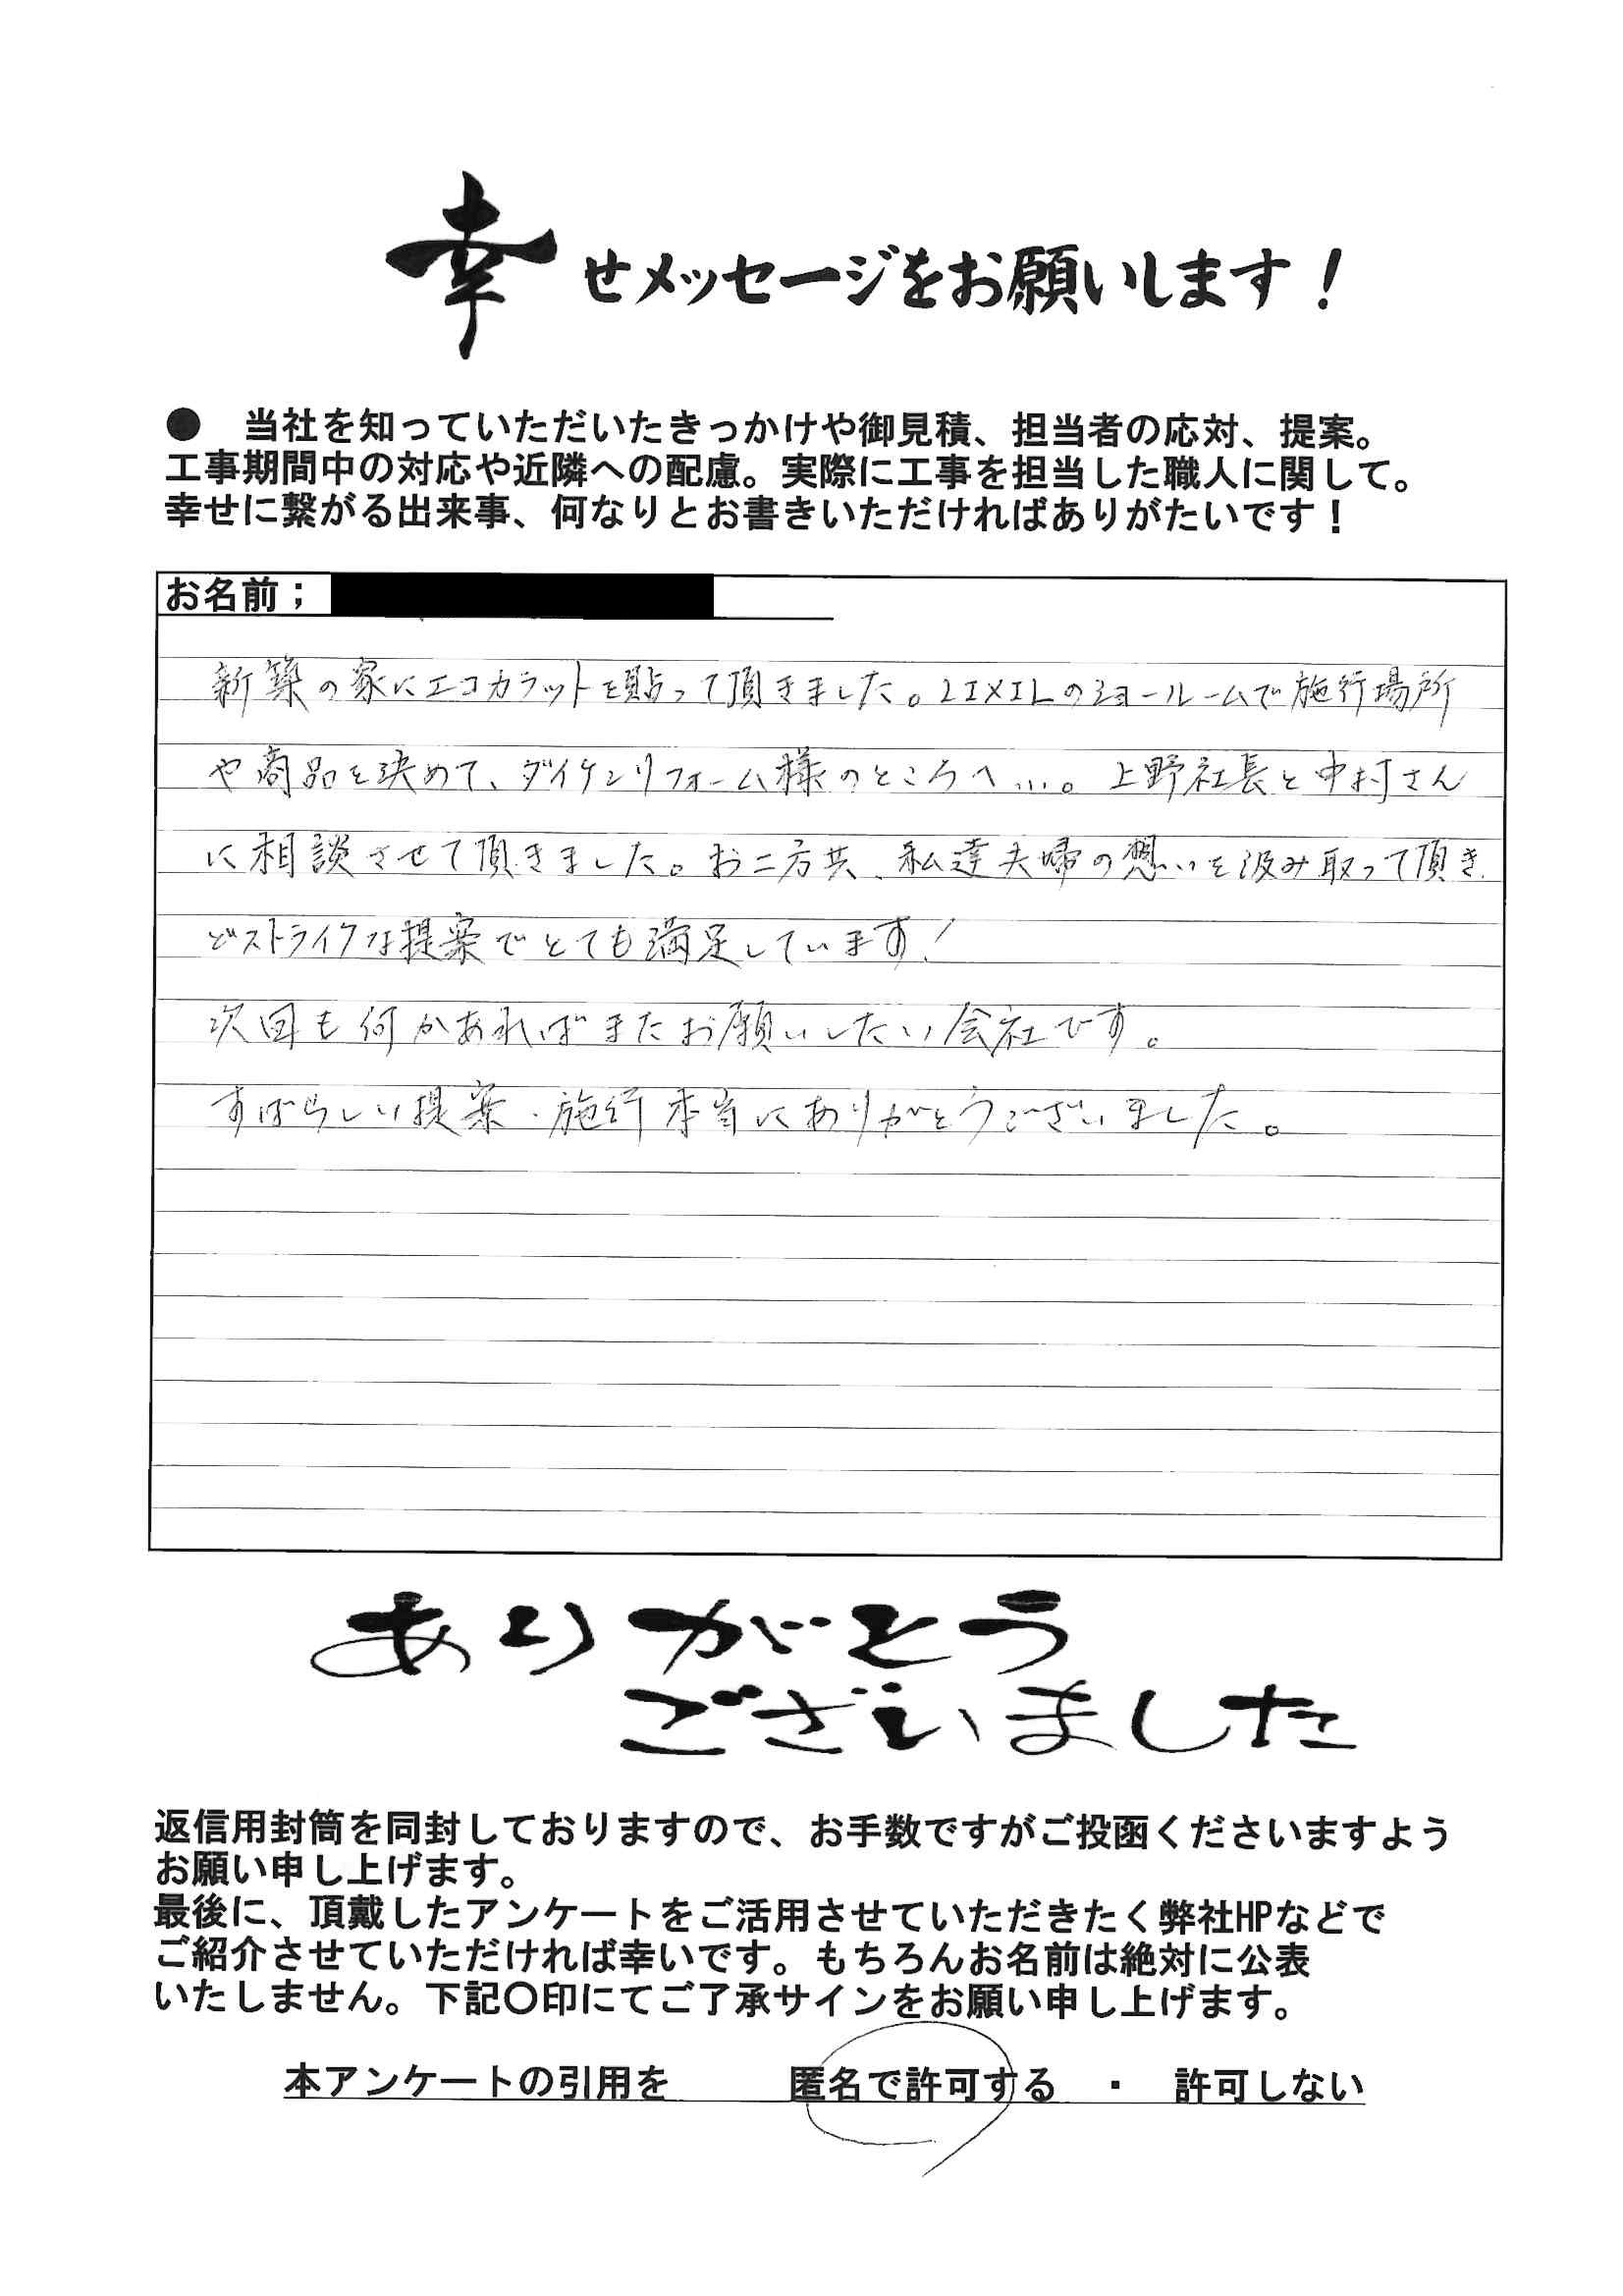 幸せメッセージをお願いします！
●　当社を知っていただいたきっかけや御見積、担当者の応対、提案。
工事期間中の対応や近隣への配慮。実際に工事を担当した職人に関して。
幸せに繋がる出来事、何なりとお書きいただければありがたいです！
お名前；
新築の家にエコカラットを貼って頂きました。LIXILのショールームで施行場所
や商品を決めて、ダイケンリフォーム様のところへ…。上野社長と中村さん
に相談させて頂きました。お二方共、私達夫婦の想いを汲み取って頂き、
どストライクな提案でとても満足しています！
次回も何かあればまたお願いしたい会社です。
すばらしい提案・施行本当にありがとうございました。
ありがとう
ございました
返信用封筒を同封しておりますので、お手数ですがご投函くださいますよう
お願い申し上げます。
最後に、頂戴したアンケートをご活用させていただきたく弊社HPなどで
ご紹介させていただければ幸いです。もちろんお名前は絶対に公表
いたしません。下記〇印にてご了承サインをお願い申し上げます。
本アンケートの引用を　　　匿名で許可する　・　許可しない